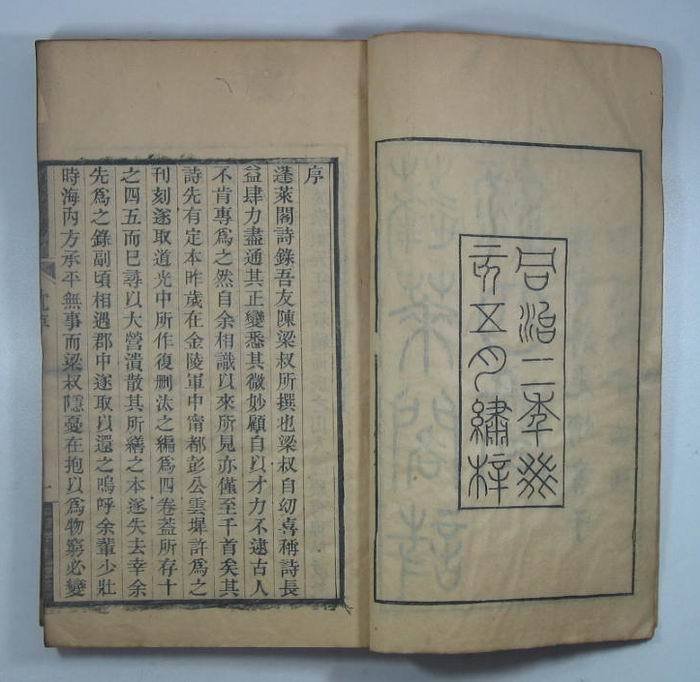 同治二年癸
亥五月繡梓
序
蓬萊閣詩錄吾友陳梁叔所撰也梁叔自幼喜稱詩長
益肆力盡通其正變悉其微妙顧自以才力不逮古人
不肯專爲之然自余相識以來所見亦僅至千首矣其
詩先有定本昨歲在金陵軍中甯都彭公雲墀許爲之
刊刻遂取道光中所作復刪汰之編爲四卷蓋所存十
之四五而已尋以大營潰散其所繕之本遂失去幸余
先爲之錄副頃相遇郡中遂取以還之嗚呼余輩少壯
時海內方承平無事而梁叔隱憂在抱以爲物窮必變